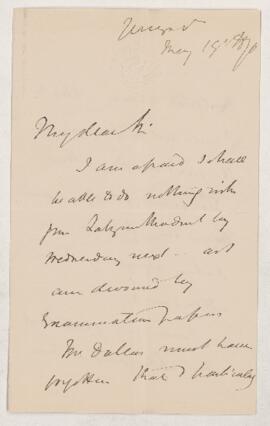 May 19th 1870
My dear Sir
I am afraid I shall
be able to do nothing with
your Labyrinthodont by
Wednesday next – as I
am devoured by
Examination papers
Mr Dallas must have
forgotten that I particularly